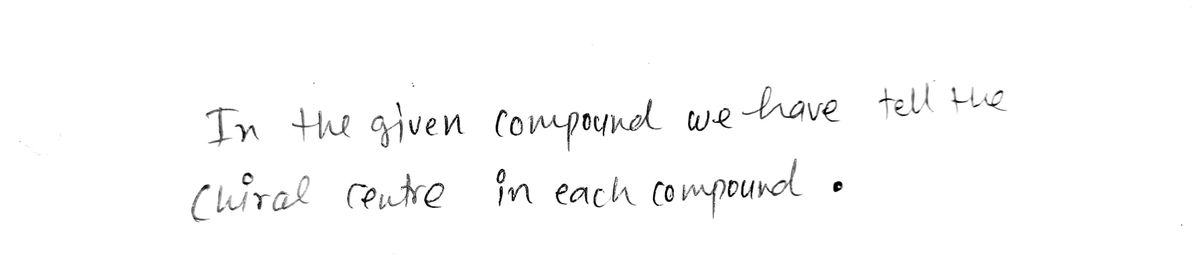 In the given compound we have tell the
Chiral centre in each compound .